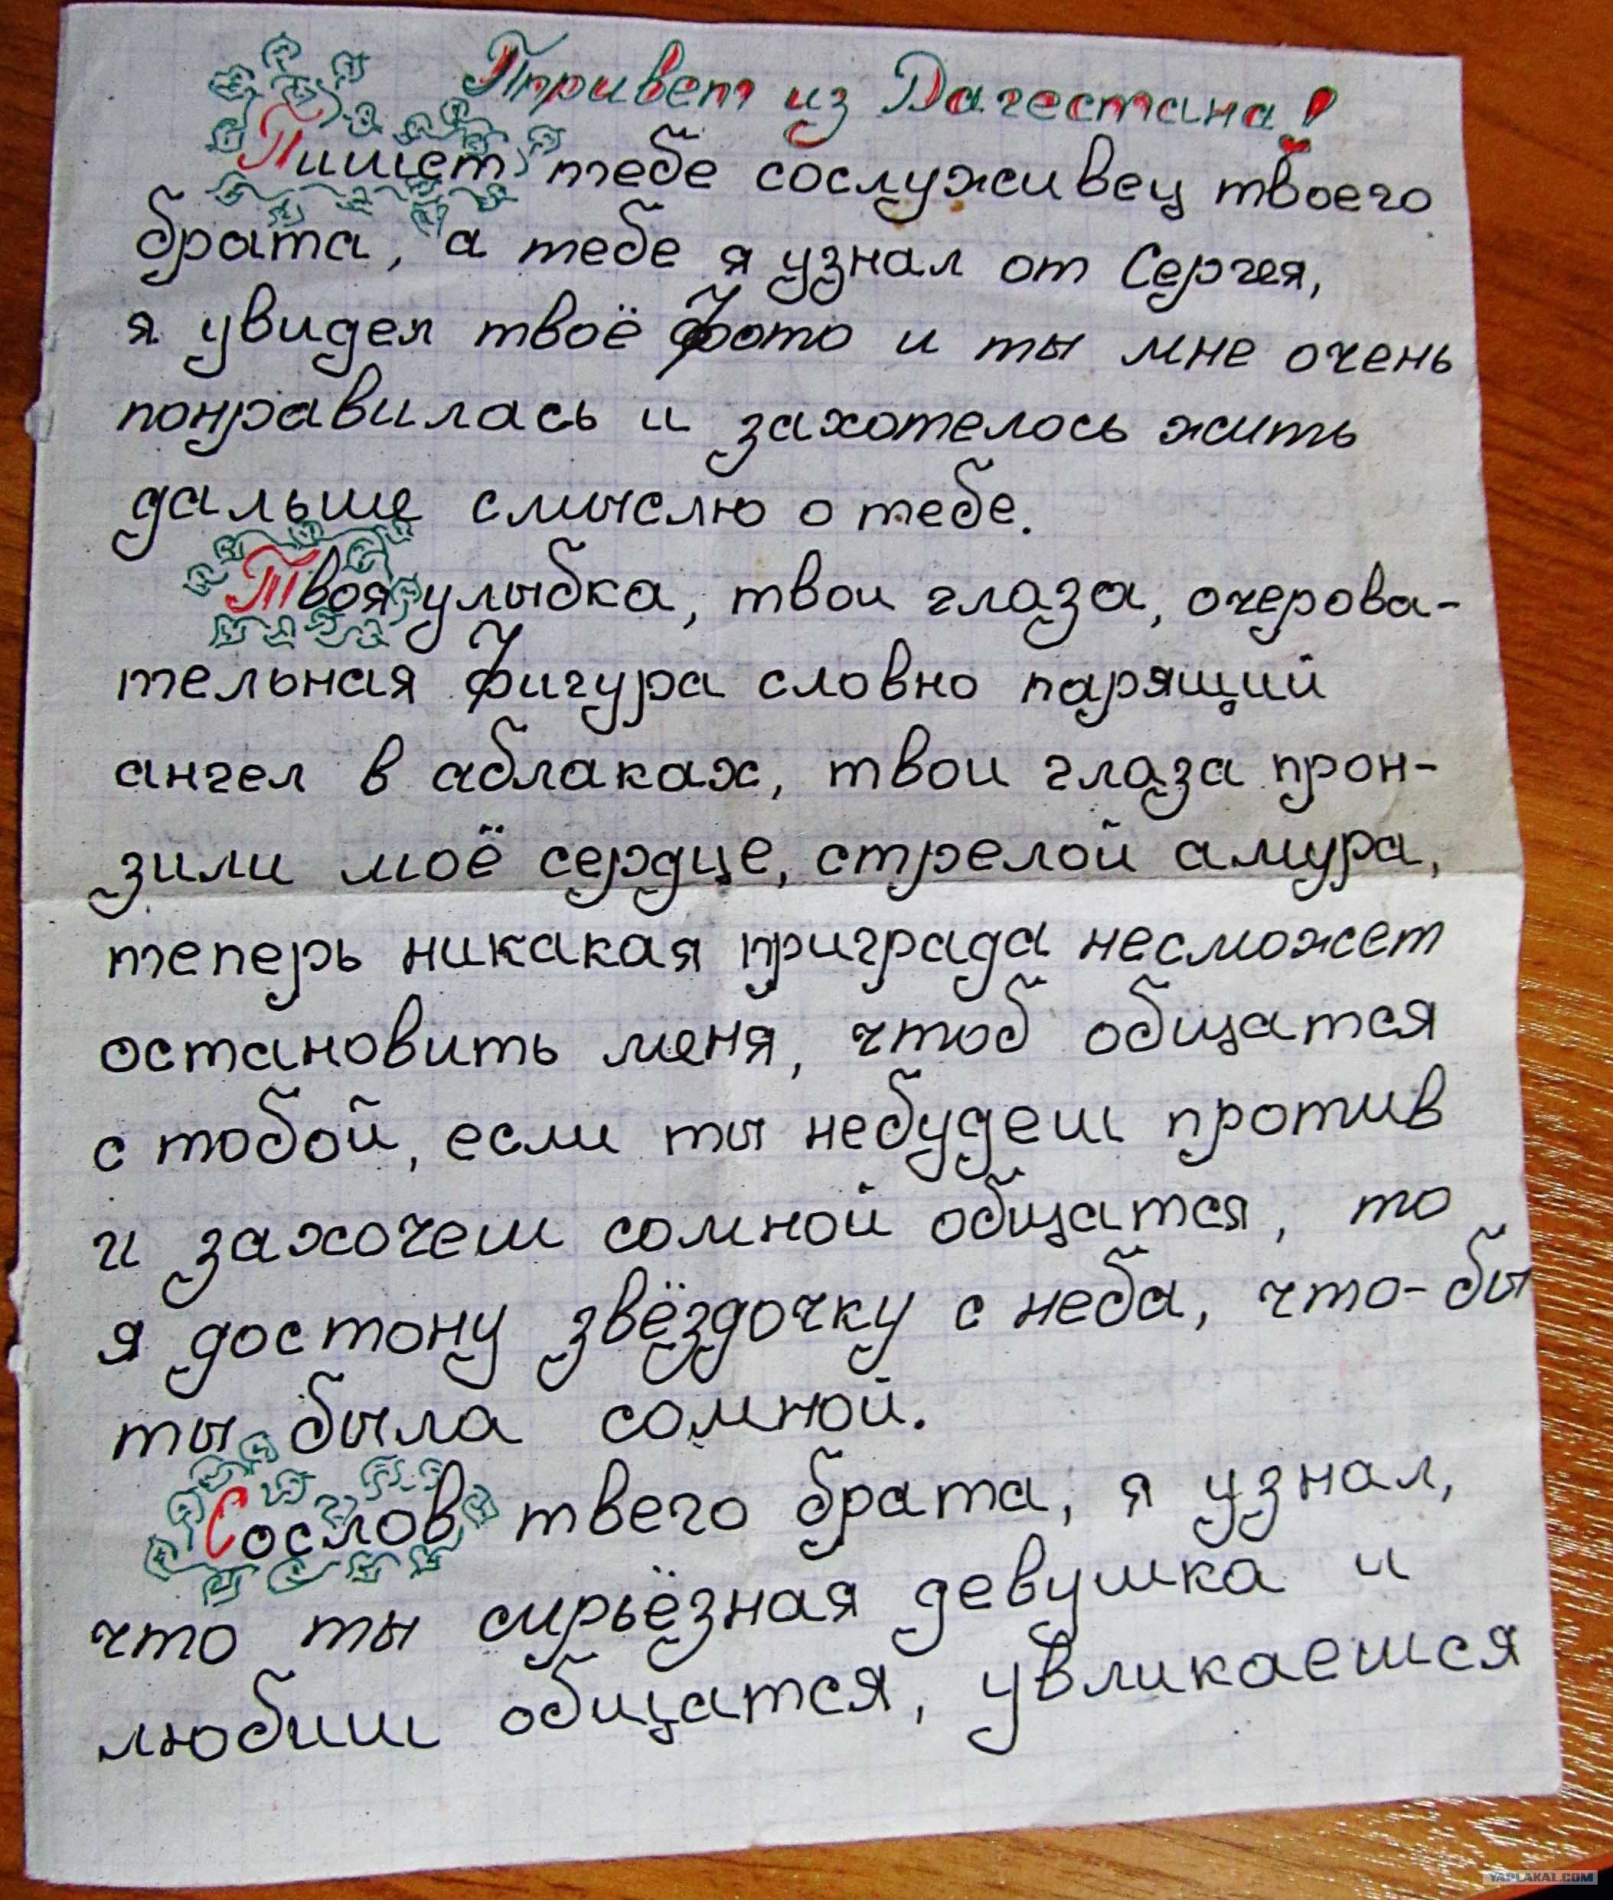 Привет из Дагестана!
Пишет тебе сослуживец твоего
брата, а тебе я узнал от Сергея,
я увидел твоё фото и ты мне очень
понравилась и захотелось жить
дальше смыслю о тебе.
Твоя улыбка, твои глаза, очерова-
тельная фигура словно парящий
ангел в аблаках, твои глаза прон-
зили моё сердце, стрелой амура,
теперь никакая приграда несможет
остановить меня, чтоб общатся
с тобой, если ты небудеш против
и захочеш сомной общатся, то
я достону звёздочку с неба, что-бы
ты была сомной.
Сослов твего брата, я узнал,
что ты сирьёзная девушка и
любиш общатся, увликаешся
YAPLAKAL.COM